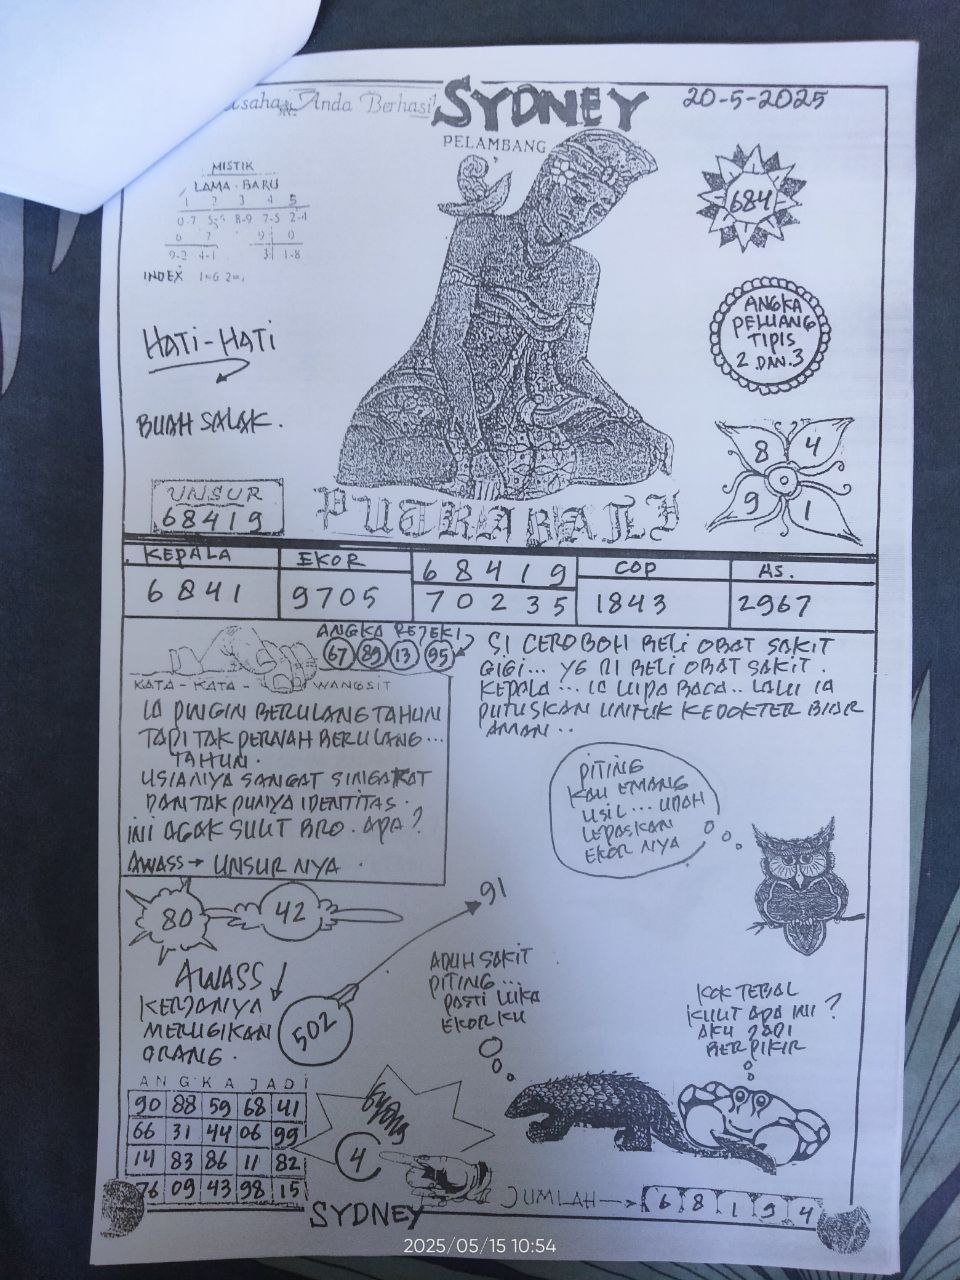 Usaha Anda Berhasil
SYDNEY
20-5-2025
PELAMBANG
MISTIK
LAMA - BARU
1 2 3 4 5
0-7 5-5 8-9 7-5 2-1
6 7 9 0
9-2 4-1 1-8
INDEX 1=6
684
HATI-HATI
BUAH SALAK.
ANGKA
PELUANG
TIPIS
2 DAN.3
8 4
9 1
UNSUR
68419
PUTRA BALI
KEPALA EKOR 68419 COP AS.
6841 9705 70235 1843 2967
ANGKA REJEKI
67 89 13 95
KATA - KATA - WANGSIT
IA PINGIN BERULANG TAHUN
TAPI TAK PERNAH BERULANG...
TAHUN.
USIANYA SANGAT SINGKAT
DAN TAK PUNYA IDENTITAS.
INI AGAK SULIT BRO. APA?
AWASS → UNSUR NYA.
SI CEROBOH BELI OBAT SAKIT
GIGI... YG DI BELI OBAT SAKIT.
KEPALA... IA LUPA BACA.. LALU IA
PUTUSKAN UNTUK KEDOKTER BIAR
AMAN..
PITING
KAU EMANG
USIL... UDAH
LEPASKAN
EKOR NYA
80 42
91
AWASS
KERJANYA
MERUGIKAN
ORANG.
502
ADUH SAKIT
PITING...
PASTI LUKA
EKORKU
KOK TEBAL
KULIT APA INI ?
AKU JADI
BERPIKIR
ANGKA JADI
90 88 59 68 41
66 31 44 06 99
14 83 86 11 82
76 09 43 98 15
4
SYDNEY
JUMLAH → 6 8 1 9 4
2025/05/15 10:54